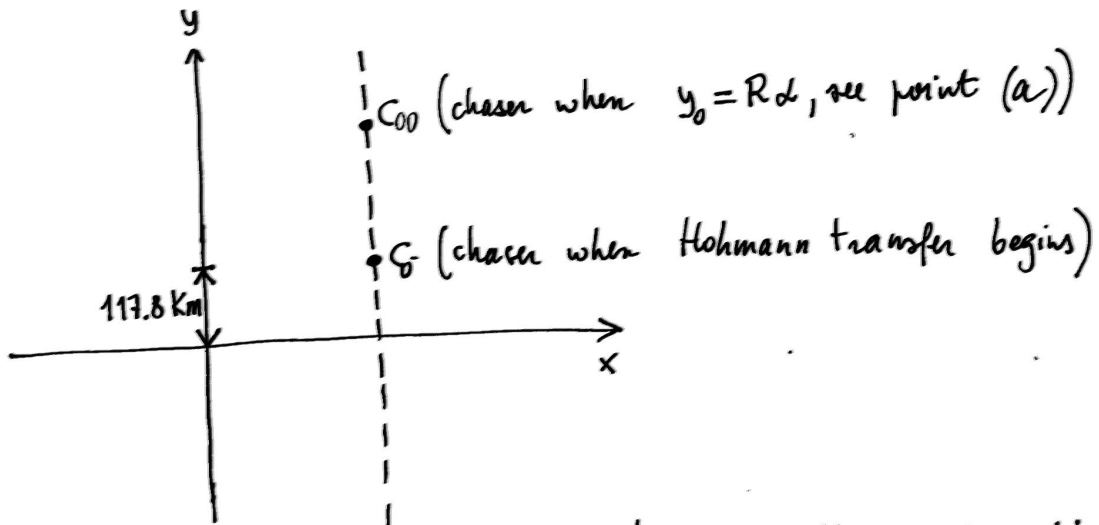 y
C₀₀ (chaser when y₀ = Rα, see point (a))
C₀⁻ (chaser when Hohmann transfer begins)
117.8 Km
x